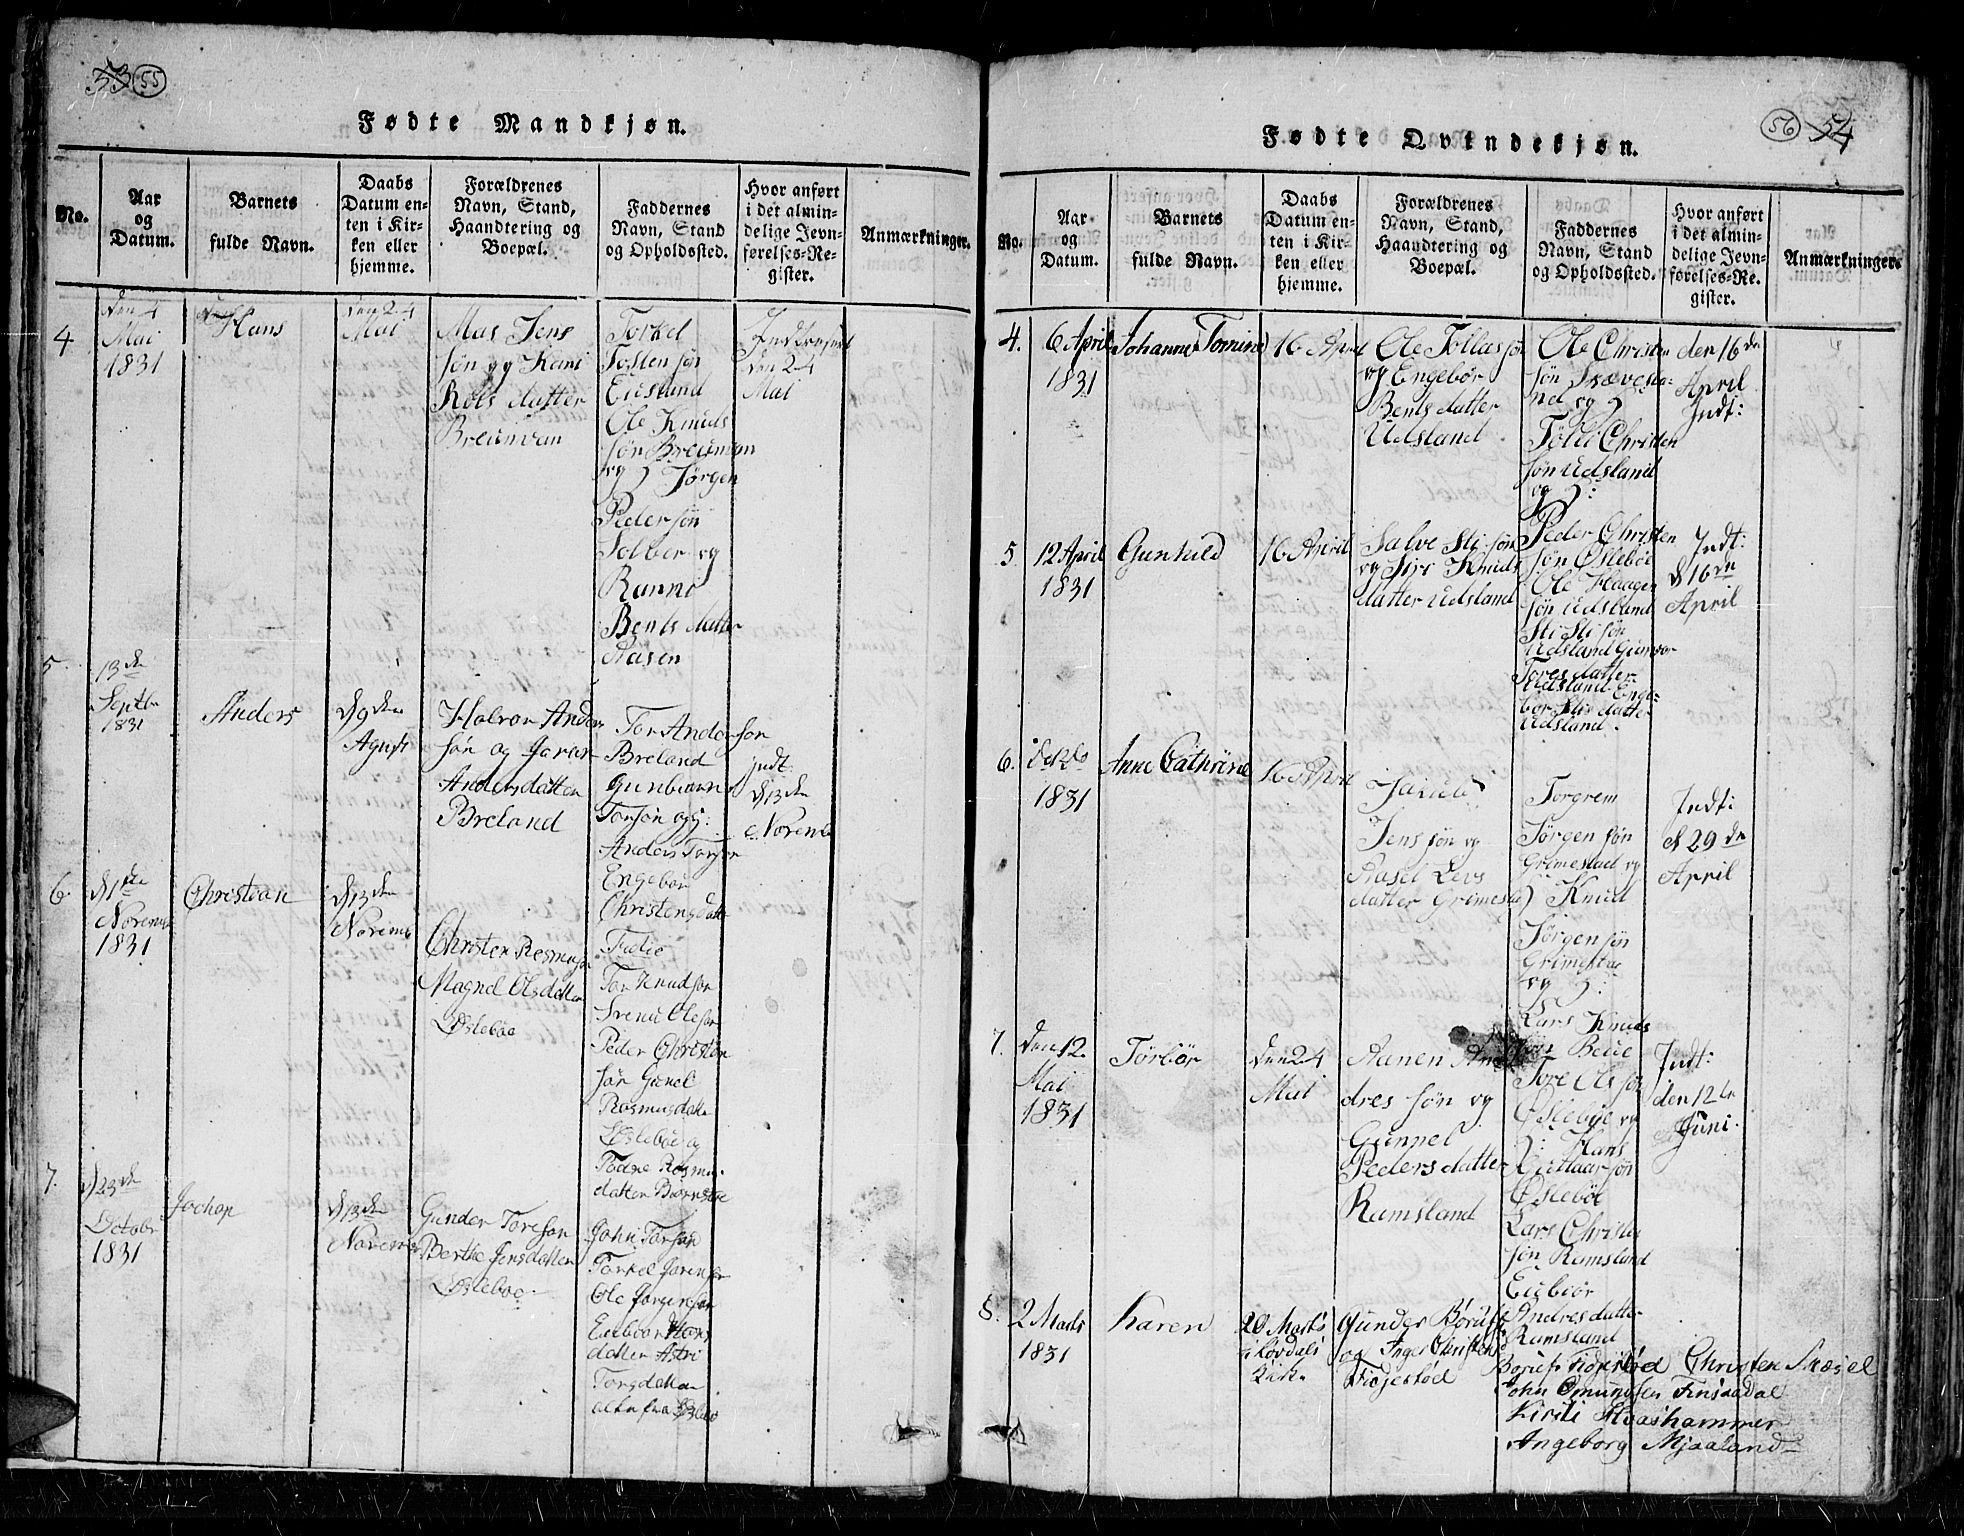 53 55
Fødte Mandkjøn.
No.
Aar
og
Datum.
Barnets
fulde Navn.
Daabs
Datum en-
ten i Kir-
ken eller
hjemme.
Forældrenes
Navn, Stand,
Haandtering og
Boepæl.
Faddernes
Navn, Stand
og Opholdssted.
Hvor anført
i det almin-
delige Jevn-
førelses-Re-
gister.
Anmærkninger.
4
den 4
Mai
1831
Hans
den 24
Mai
Mas Jens
søn og Kani
Rols datter
Breunvan
Torkel
Tosten søn
Eusland
Ole Knuds
søn Breunvan
og Jørgen
Peder søn
Solber og
Ranno
Bents datter
Aasen
den 24
Mai
5
13de
Septbr
1831
Anders
d 9den
Agust
Halvor Anders
søn og Joran
Andersdatter
Breland
Tor Anderson
Breland
Gunbiørn
Torsøn og
Anders Torsen
Engebor
Christensdatter
Indt:
d 13den
Novemb
6
d 1ste
Novemb
1831
Christian
d 13den
Novemb
Christen Rasmuson
Magnel Olsdatter
Øslebøe
Tor Knudsøn
Svend Olesøn
Peder Christen
søn Gunel
Rasmusdatter
Øslebøe og
Todne Rasmus
datter Biørnstøe
7.
d 23de
October
1831
Jochop
d 13den
Novemb
Gunder Toresøn
Berthe Jensdatter
Øsleboe
John Torsøn
Torkel Jorensøn
Ole Jørgensøn
Eneboer Hans
datter Astri
Torgdatter
alle fra Øslebo
56 54
Fødte Qvindekjøn.
No.
Aar
og
Datum.
Barnets
fulde Navn.
Daabs
Datum en-
ten i Kir-
ken eller
hjemme.
Forældrenes
Navn, Stand,
Haandtering og
Boepæl.
Faddernes
Navn, Stand
og Opholdssted.
Hvor anført
i det almin-
delige Jevn-
førelses-Re-
gister.
Anmærkninger
4.
6 April
1831
Johanne Tomine
16 April
Ole Tollas søn
og Engebør
Bents datter
Udsland
Ole Christen
søn Trævesta-
nd og
Tølle Christen
søn Udsland
og
den 16de
April
Indt:
5
12 April
1831
Gunhild
16 April
Salve Sti søn
og Siri Knuds
datter Udsland
Peder Christen
søn Øslebøe
Ole Haagen
søn Udsland
Sti Sti søn
Udsland Gunvor
Tores datter
Udsland Enge-
bor Stis datter
Udsland.
Indt:
d 16de
April
6.
1831
Anne Cathrine
16 April
Jacub
Jens søn og
Aasel Levs
datter Grimestad
Torgrem
Jørgen søn
Grimestad og
Knud
Jørgen søn
Grimestad
og
Lars Knuds
søn Beue
Indt:
d 29de
April
7.
den 12.
Mai
1831
Torbør
den 24
Mai
Aanen An
dres søn og
Gunnel
Peders datter
Ramsland
Tore Ols søn
Øslebøe og
Hans
Gutlaar søn
Øslebøe
Lars Christen
søn Ramsland
Eliebiør
Andres datter
Ramsland
Indt:
den 12te
Juni.
8.
2 Marts
1831
Karen
20 Marts
i Løvdals
Kirk.
Gunder Børufs
og Inger Christens
Fidjestød
Børuf Fidjestød Christen Skæjel
John Omundsen Finsaadal
Kirsti Haashammer
Angeborg Mjaaland